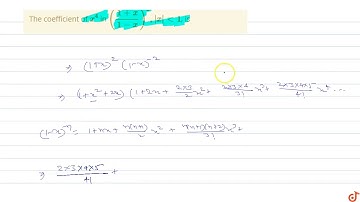 The coefficient of x⁴ in ((1+x)/(1-x))², |x| < 1, is
⇒ (1+x)² (1-x)⁻²
⇒ (1+x²+2x) (1+2x+ (2×3)/2 x²+ (2×3×4)/3! x³+ (2×3×4×5)/4! x⁴ ...
(1-x)⁻ⁿ = 1+nx+ n(n+1)/2 x² + n(n+1)(n+2)/3! x³+
⇒ (2×3×4×5)/4! +